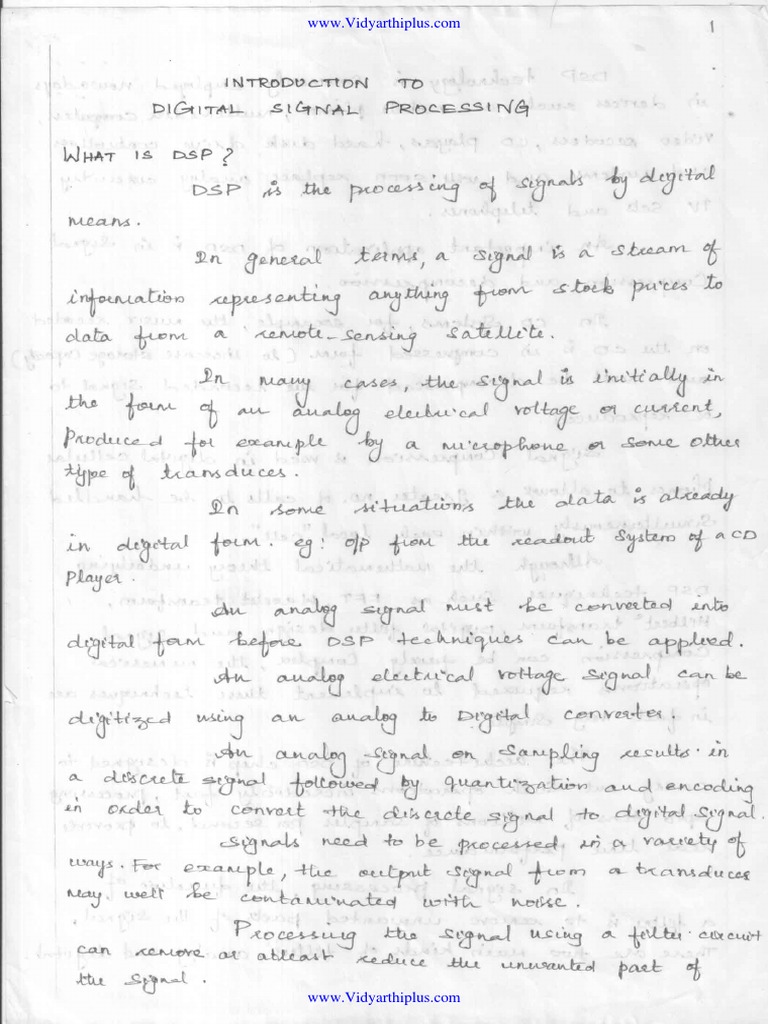 www.Vidyarthiplus.com
1
INTRODUCTION TO
DIGITAL SIGNAL PROCESSING
WHAT IS DSP?
DSP is the processing of signals by digital
means.
In general terms, a signal is a stream of
information representing anything from stock prices to
data from a remote-sensing satellite.
In many cases, the signal is initially in
the form of an analog electrical voltage or current,
Produced for example by a microphone or some other
type of transducer.
In some situations the data is already
in digital form. eg: o/p from the readout system of a CD
Player.
An analog signal must be converted into
digital form before DSP techniques can be applied.
An analog electrical voltage signal can be
digitized using an analog to Digital converter.
An analog signal on sampling results in
a discrete signal followed by Quantization and encoding
in order to convert the discrete signal to digital signal.
Signals need to be processed in a variety of
ways. For example, the output signal from a transducer
may well be contaminated with noise.
Processing the signal using a filter circuit
can remove or atleast reduce the unwanted part of
the signal.
www.Vidyarthiplus.com